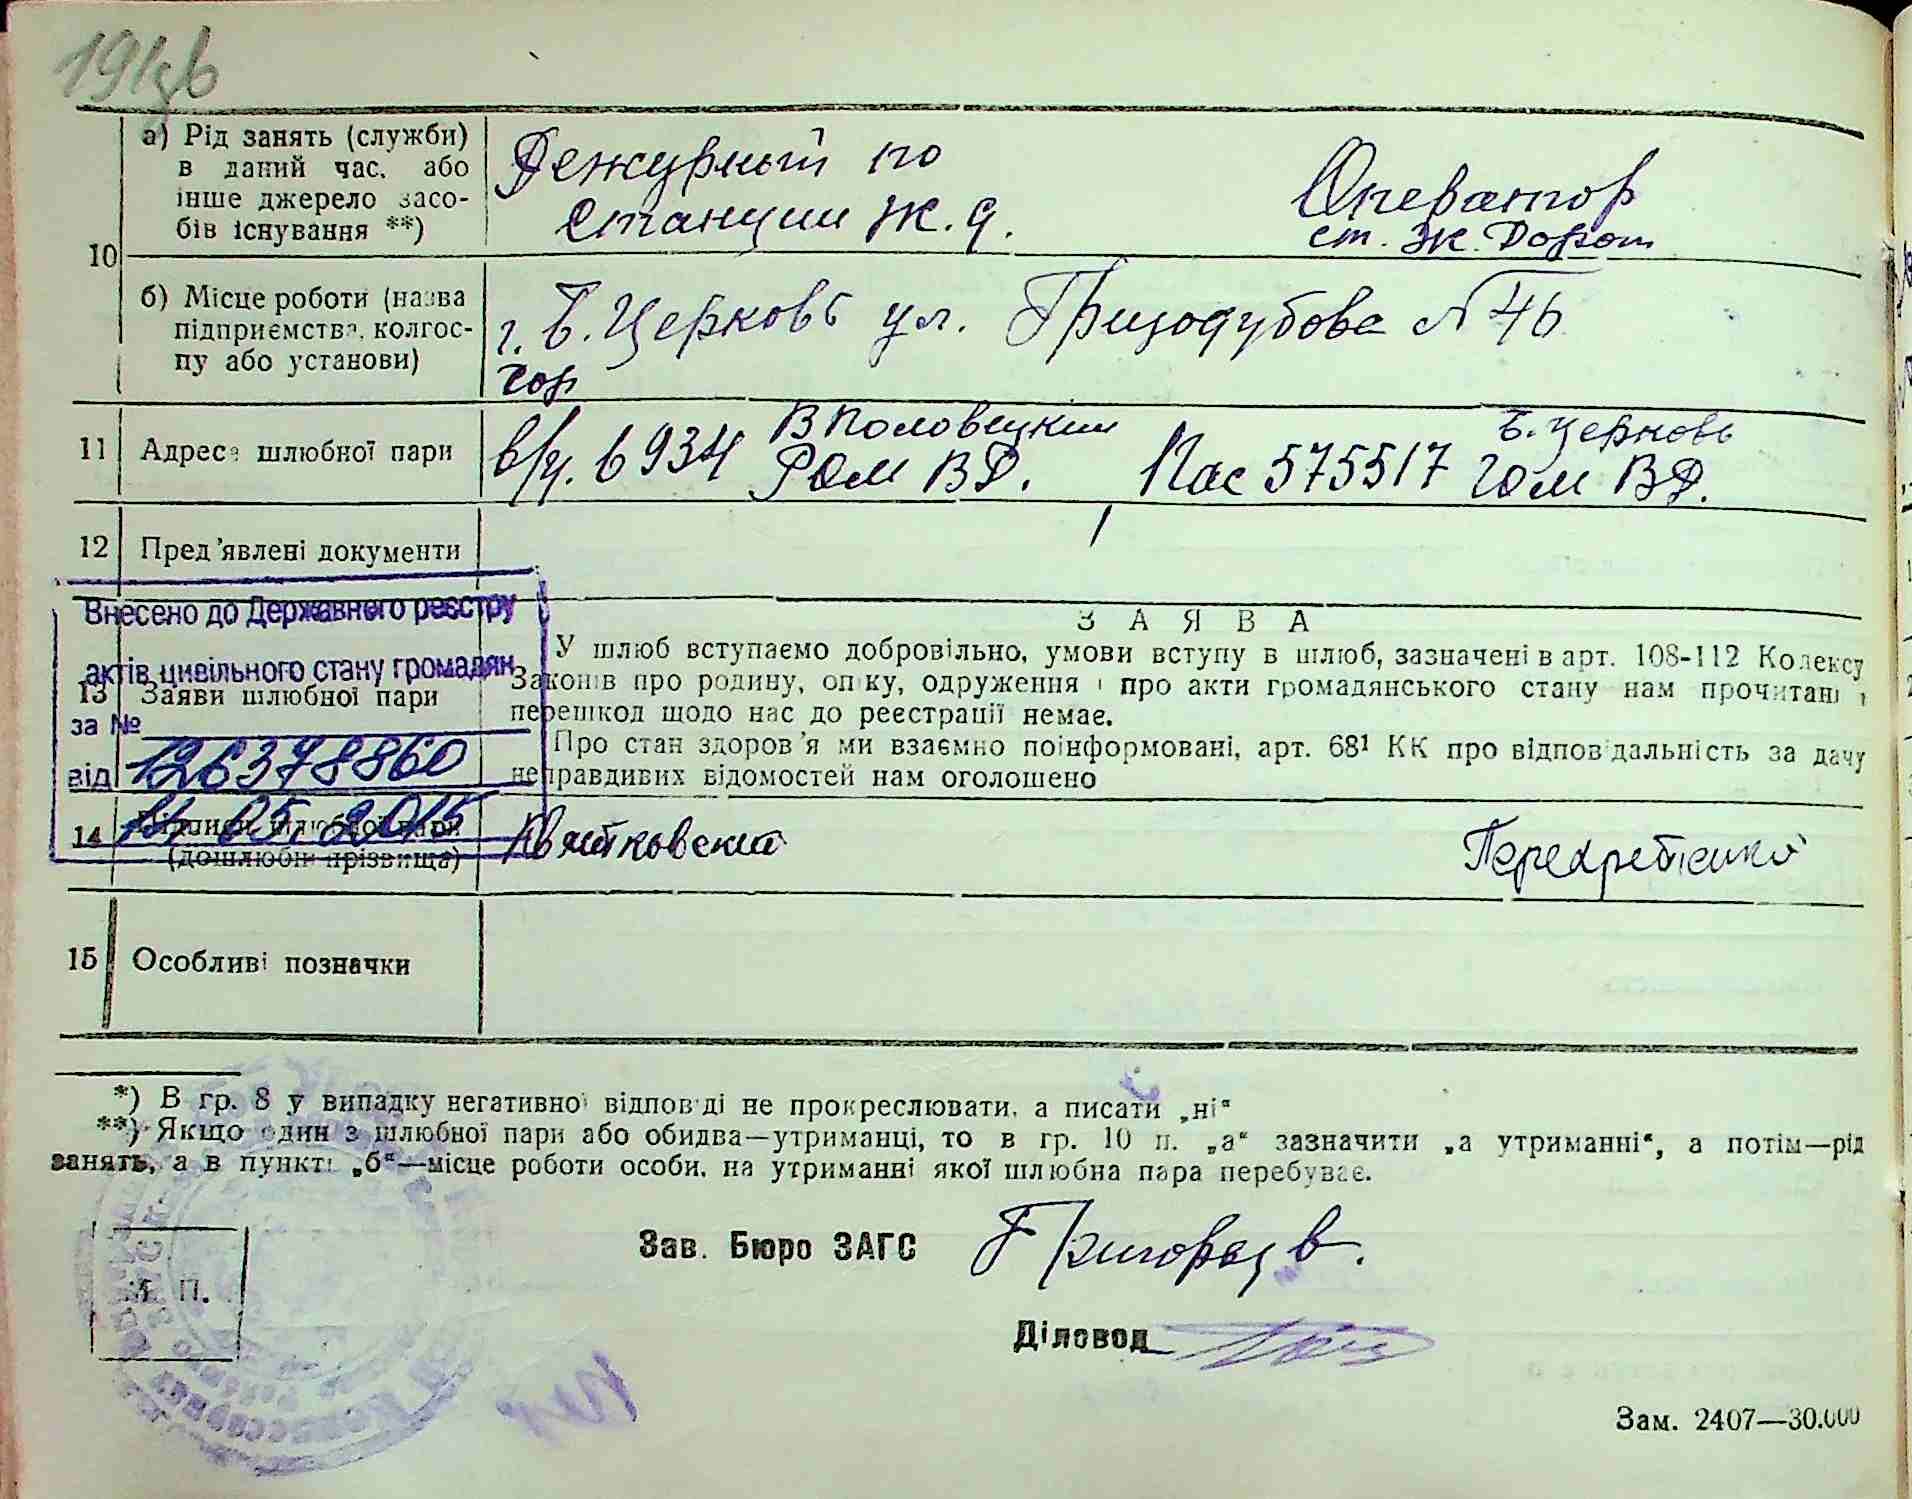 191зв
10
а) Рід занять (служби) в даний час, або інше джерело засобів існування **)
Дежурный по
станции ж.д.
Оператор
ст. Ж. Дорог
б) Місце роботи (назва підприємства, колгоспу або установи)
г. Б. Церковь ул. Гризодубова №46
11 Адреса шлюбної пари
в/ч. 6934 В Половецким
РОМ ВД.
Пас 575517 Б. Церковь
ГОМ ВД.
12 Пред'явлені документи
Внесено до Державного реєстру
актів цивільного стану громадян
за № 126378860
від 14. 05. 2015
13 Заяви шлюбної пари
ЗАЯВА
У шлюб вступаємо добровільно, умови вступу в шлюб, зазначені в арт. 108-112 Кодексу
Законів про родину, опіку, одруження і про акти громадянського стану нам прочитані і
перешкод щодо нас до реєстрації немає.
Про стан здоров'я ми взаємно поінформовані, арт. 68¹ КК про відповідальність за дачу
неправдивих відомостей нам оголошено
14 Підписи шлюбної пари
(дошлюбні прізвища)
Квятковский
Перехретенко
15 Особливі позначки
*) В гр. 8 у випадку негативної відповіді не прокреслювати, а писати „ні“
**) Якщо один з шлюбної пари або обидва—утриманці, то в гр. 10 п. „а“ зазначити „а утриманні“, а потім—рід
занять, а в пункті „б“—місце роботи особи, на утриманні якої шлюбна пара перебуває.
Зав. Бюро ЗАГС
М. П.
Діловод
Зам. 2407—30.000